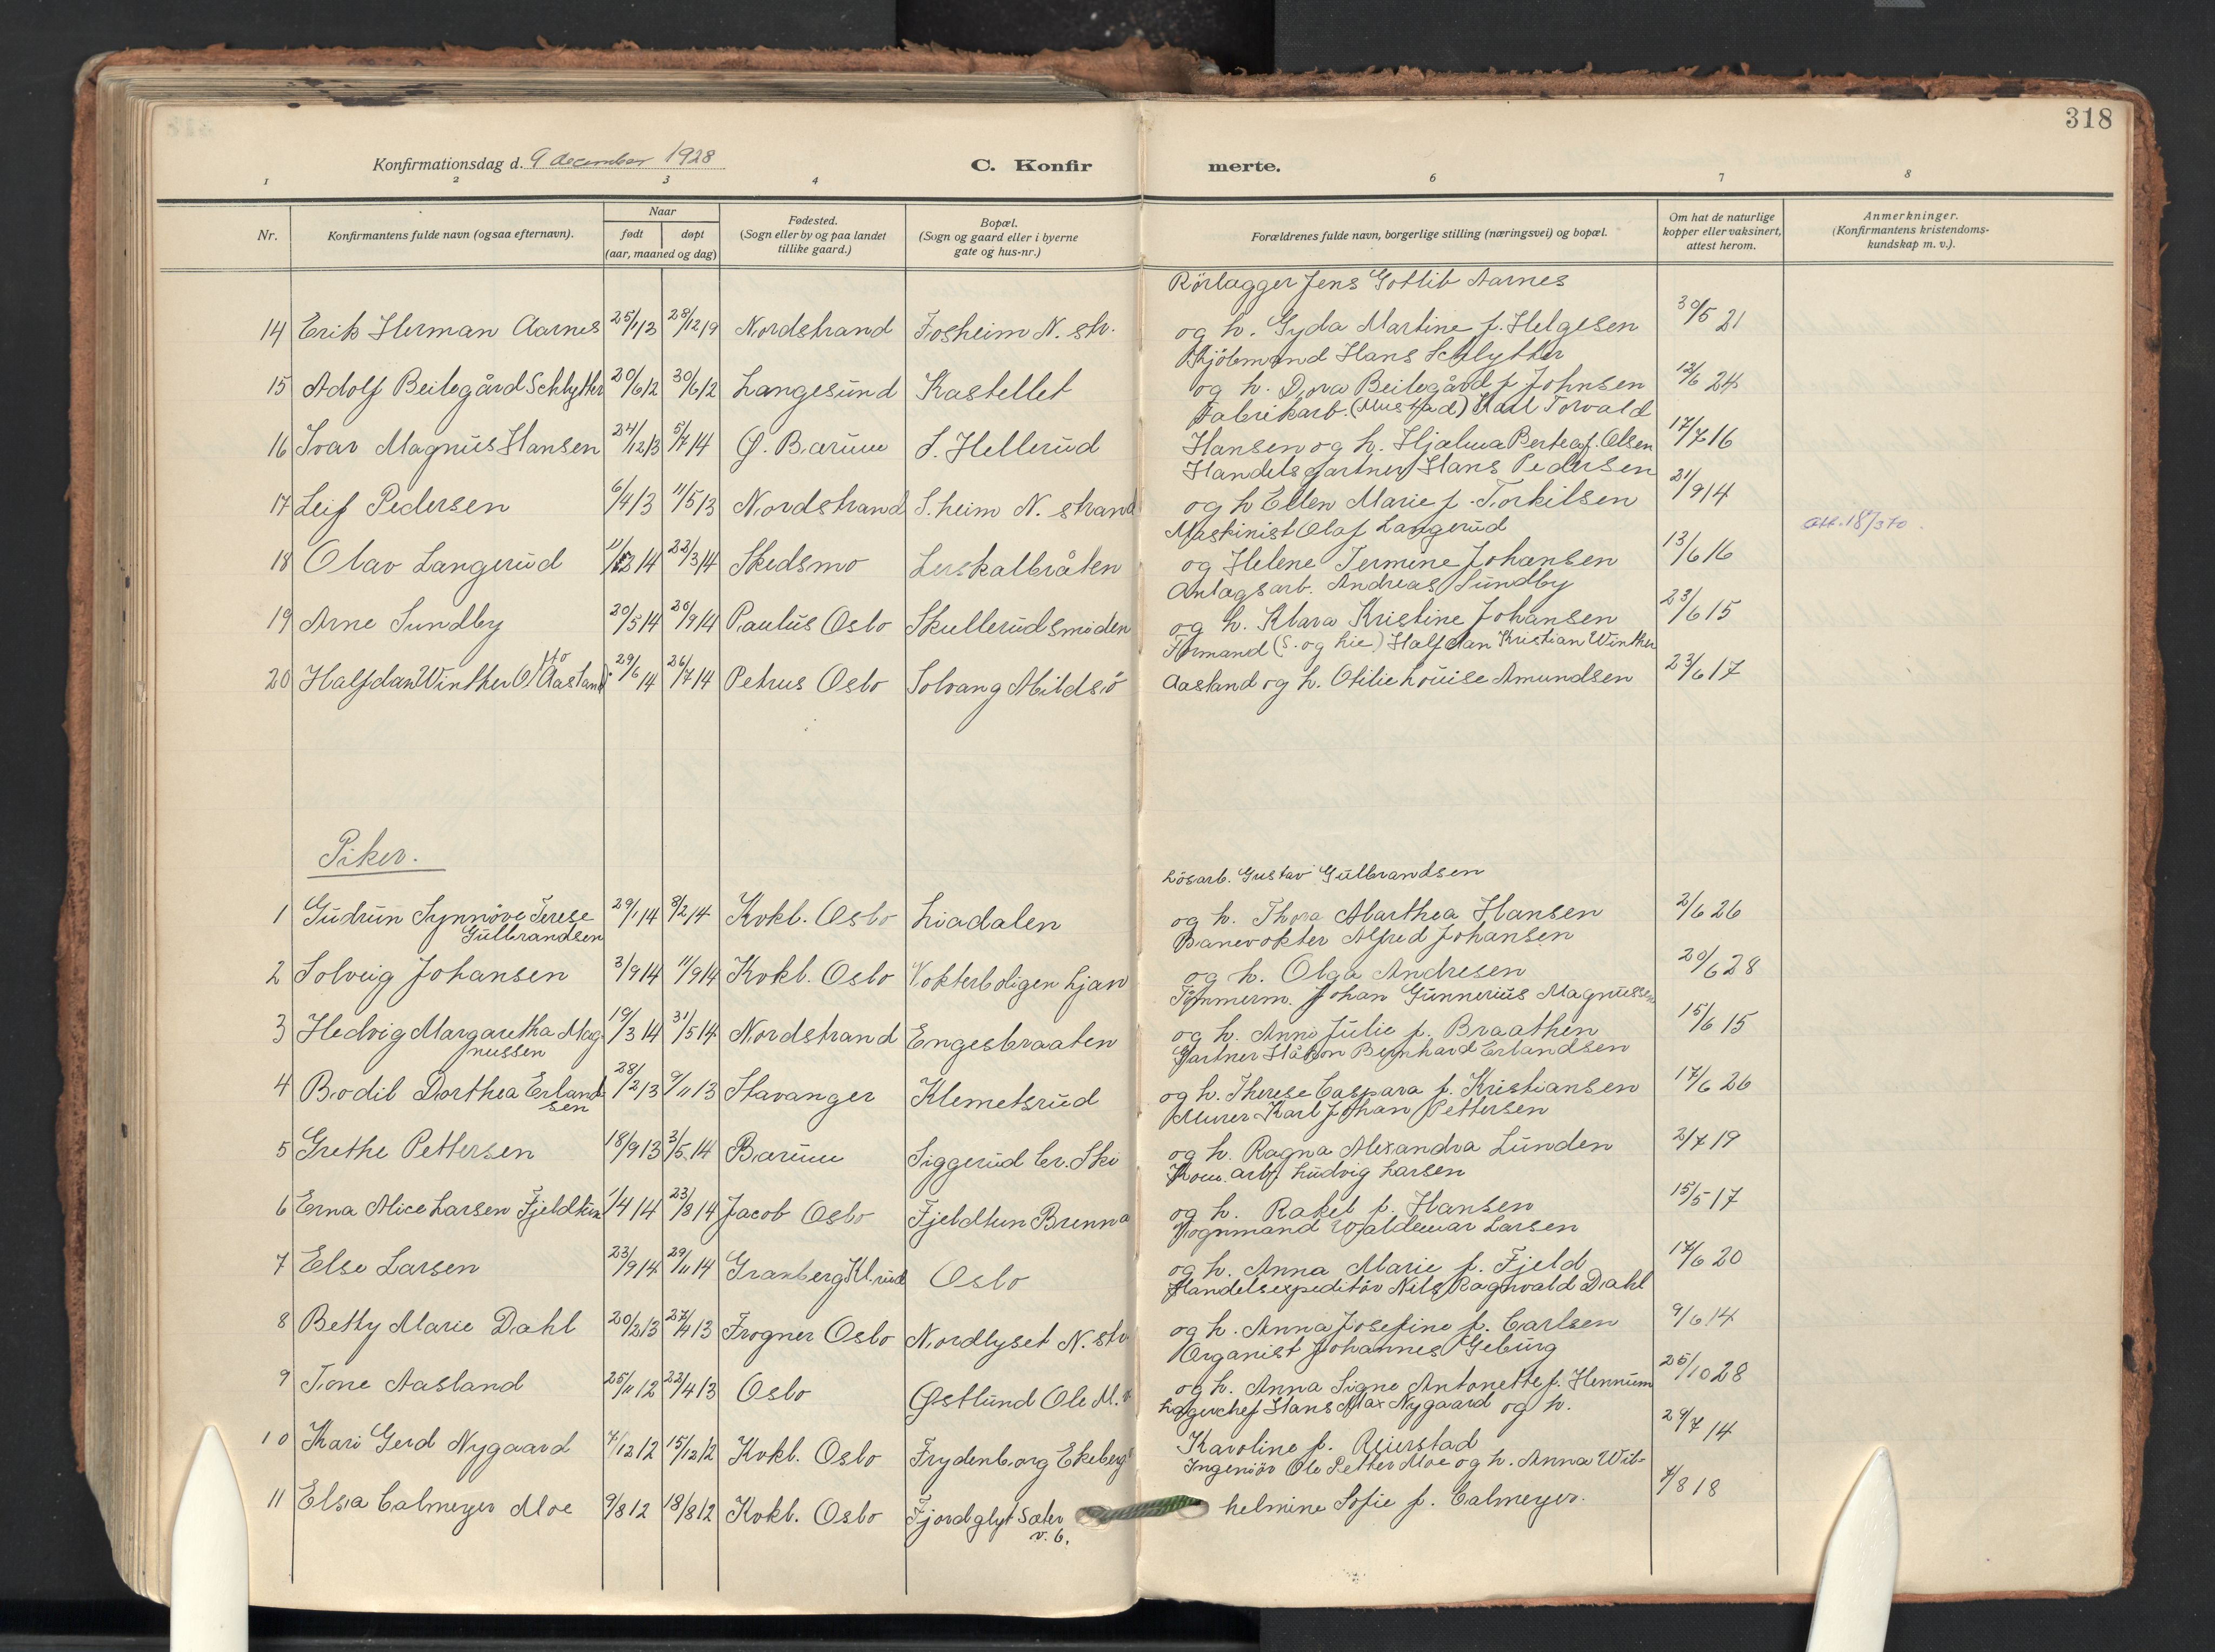 318
Konfirmationsdag d. 9 december 1928
C. Konfirmerte.
1 2 3 4 6 7 8
Nr. Konfirmantens fulde navn (ogsaa efternavn). Naar født døpt (aar, maaned og dag) Fødested. (Sogn eller by og paa landet tillike gaard.) Bopæl. (Sogn og gaard eller i byerne gate og hus-nr.) Forældrenes fulde navn, borgerlige stilling (næringsvei) og bopæl. Om hat de naturlige kopper eller vaksinert, attest herom. Anmerkninger. (Konfirmantens kristendoms-kundskap m. v.).
Rörlægger Jens Gotlib Aarnes
14 Erik Herman Aarnes 25/1 13 28/12 19 Nordstrand Fosheim N. str. og h. Gyda Martine f. Helgesen 30/5 21
Hans Schlytter
15 Adolf Beitegård Schlytter 20/6 12 30/6 12 Langesund Kastellet og h. Dora Beitegård f. Johnsen 12/6 24
Fabrikarb. (Mustad) Karl Torvald
16 Ivar Magnus Hansen 24/12 13 5/7 14 Ø. Bærum S. Hellerud Hansen og h. Hjalma Bertea f. Olsen 17/7 16
Handelsgartner Hans Pedersen
17 Leif Pedersen 6/4 13 11/5 13 Nordstrand S.heim N. strand og h Ellen Marie f. Torkilsen 21/9 14
Maskinist Olaf Langerud
18 Olav Langerud 14 22/3 14 Skedsmo Lerskalbråten og Helene Jermine Johansen 13/6 16 att. 187/370.
Anlagsarb. Andreas Sundby
19 Arne Sundby 20/5 14 20/9 14 Paulus Oslo Skullerudsmoden og h. Klara Kristine Johansen 23/6 15
Formand (S. og hie) Halfdan Kristian Winther
20 Halfdan Winther Aasland 29/6 14 26/7 14 Petrus Oslo Solvang Mildsö Aasland og h. Otilie Louise Amundsen 23/6 17
Piker.
Lösarb. Gustav Gulbrandsen
1 Gudrun Synnöve Terese Gulbrandsen 29/1 14 8/2 14 Kvkb. Oslo Liadalen og h. Thora Marthea Hansen 2/6 26
Banevokter Alfred Johansen
2 Solveig Johansen 3/9 14 11/9 14 Kvkb. Oslo Vokterboligen Ljan og h. Olga Andresen 20/6 28
Tömmerm. Johan Gunnerius Magnussen
3 Hedvig Margaretha Magnussen 19/3 14 31/5 14 Nordstrand Engesbraaten og h. Anna Julie f. Braathen 15/6 15
Gartner Håkon Bernhard Erlandsen
4 Bodil Dorthea Erlandsen 28/2 13 9/11 13 Stavanger Klemetsrud og h. Therese Caspara f. Kristiansen 17/6 26
Murer Karl Johan Pettersen
5 Grethe Pettersen 18/9 13 3/5 14 Bærum Siggerud br. Ski og h. Ragna Alexandra Lunden 2/7 19
Kom. arb. Ludvig Larsen
6 Erna Alice Larsen Fjeldtun 1/4 14 23/8 14 Jacob Oslo Fjeldtun Brenna og h. Rakel f. Hansen 15/5 17
Vognmand Waldemar Larsen
7 Else Larsen 23/9 14 29/11 14 Granberg Kl.rud Oslo og h. Anna Marie f. Fjeld 17/6 20
Handelsexpeditör Nils Ragnvald Dahl
8 Betty Marie Dahl 20/2 13 27/4 13 Frogner Oslo Nordlyset N. str. og h. Anna Josefine f. Carlsen 9/6 14
Organist Johannes Geburg
9 Tone Aasland 25/11 12 22/4 13 Oslo Østlund Ole M. v. og h. Anna Signe Antonette f. Hennum 25/10 28
Lagerchef Hans Max Nygaard og h.
10 Kari Gerd Nygaard 7/12 12 15/12 12 Kvkb. Oslo Frydenborg Ekeberg Karoline f. Reierstad 29/7 14
Ingeniör Ole Petter Moe og h. Anna Wil-
11 Elsa Calmeyer Moe 9/8 12 18/8 12 Kvkb. Oslo Fjordglyt Sæter v. 6. helmine Sofie f. Calmeyer. 7/8 18